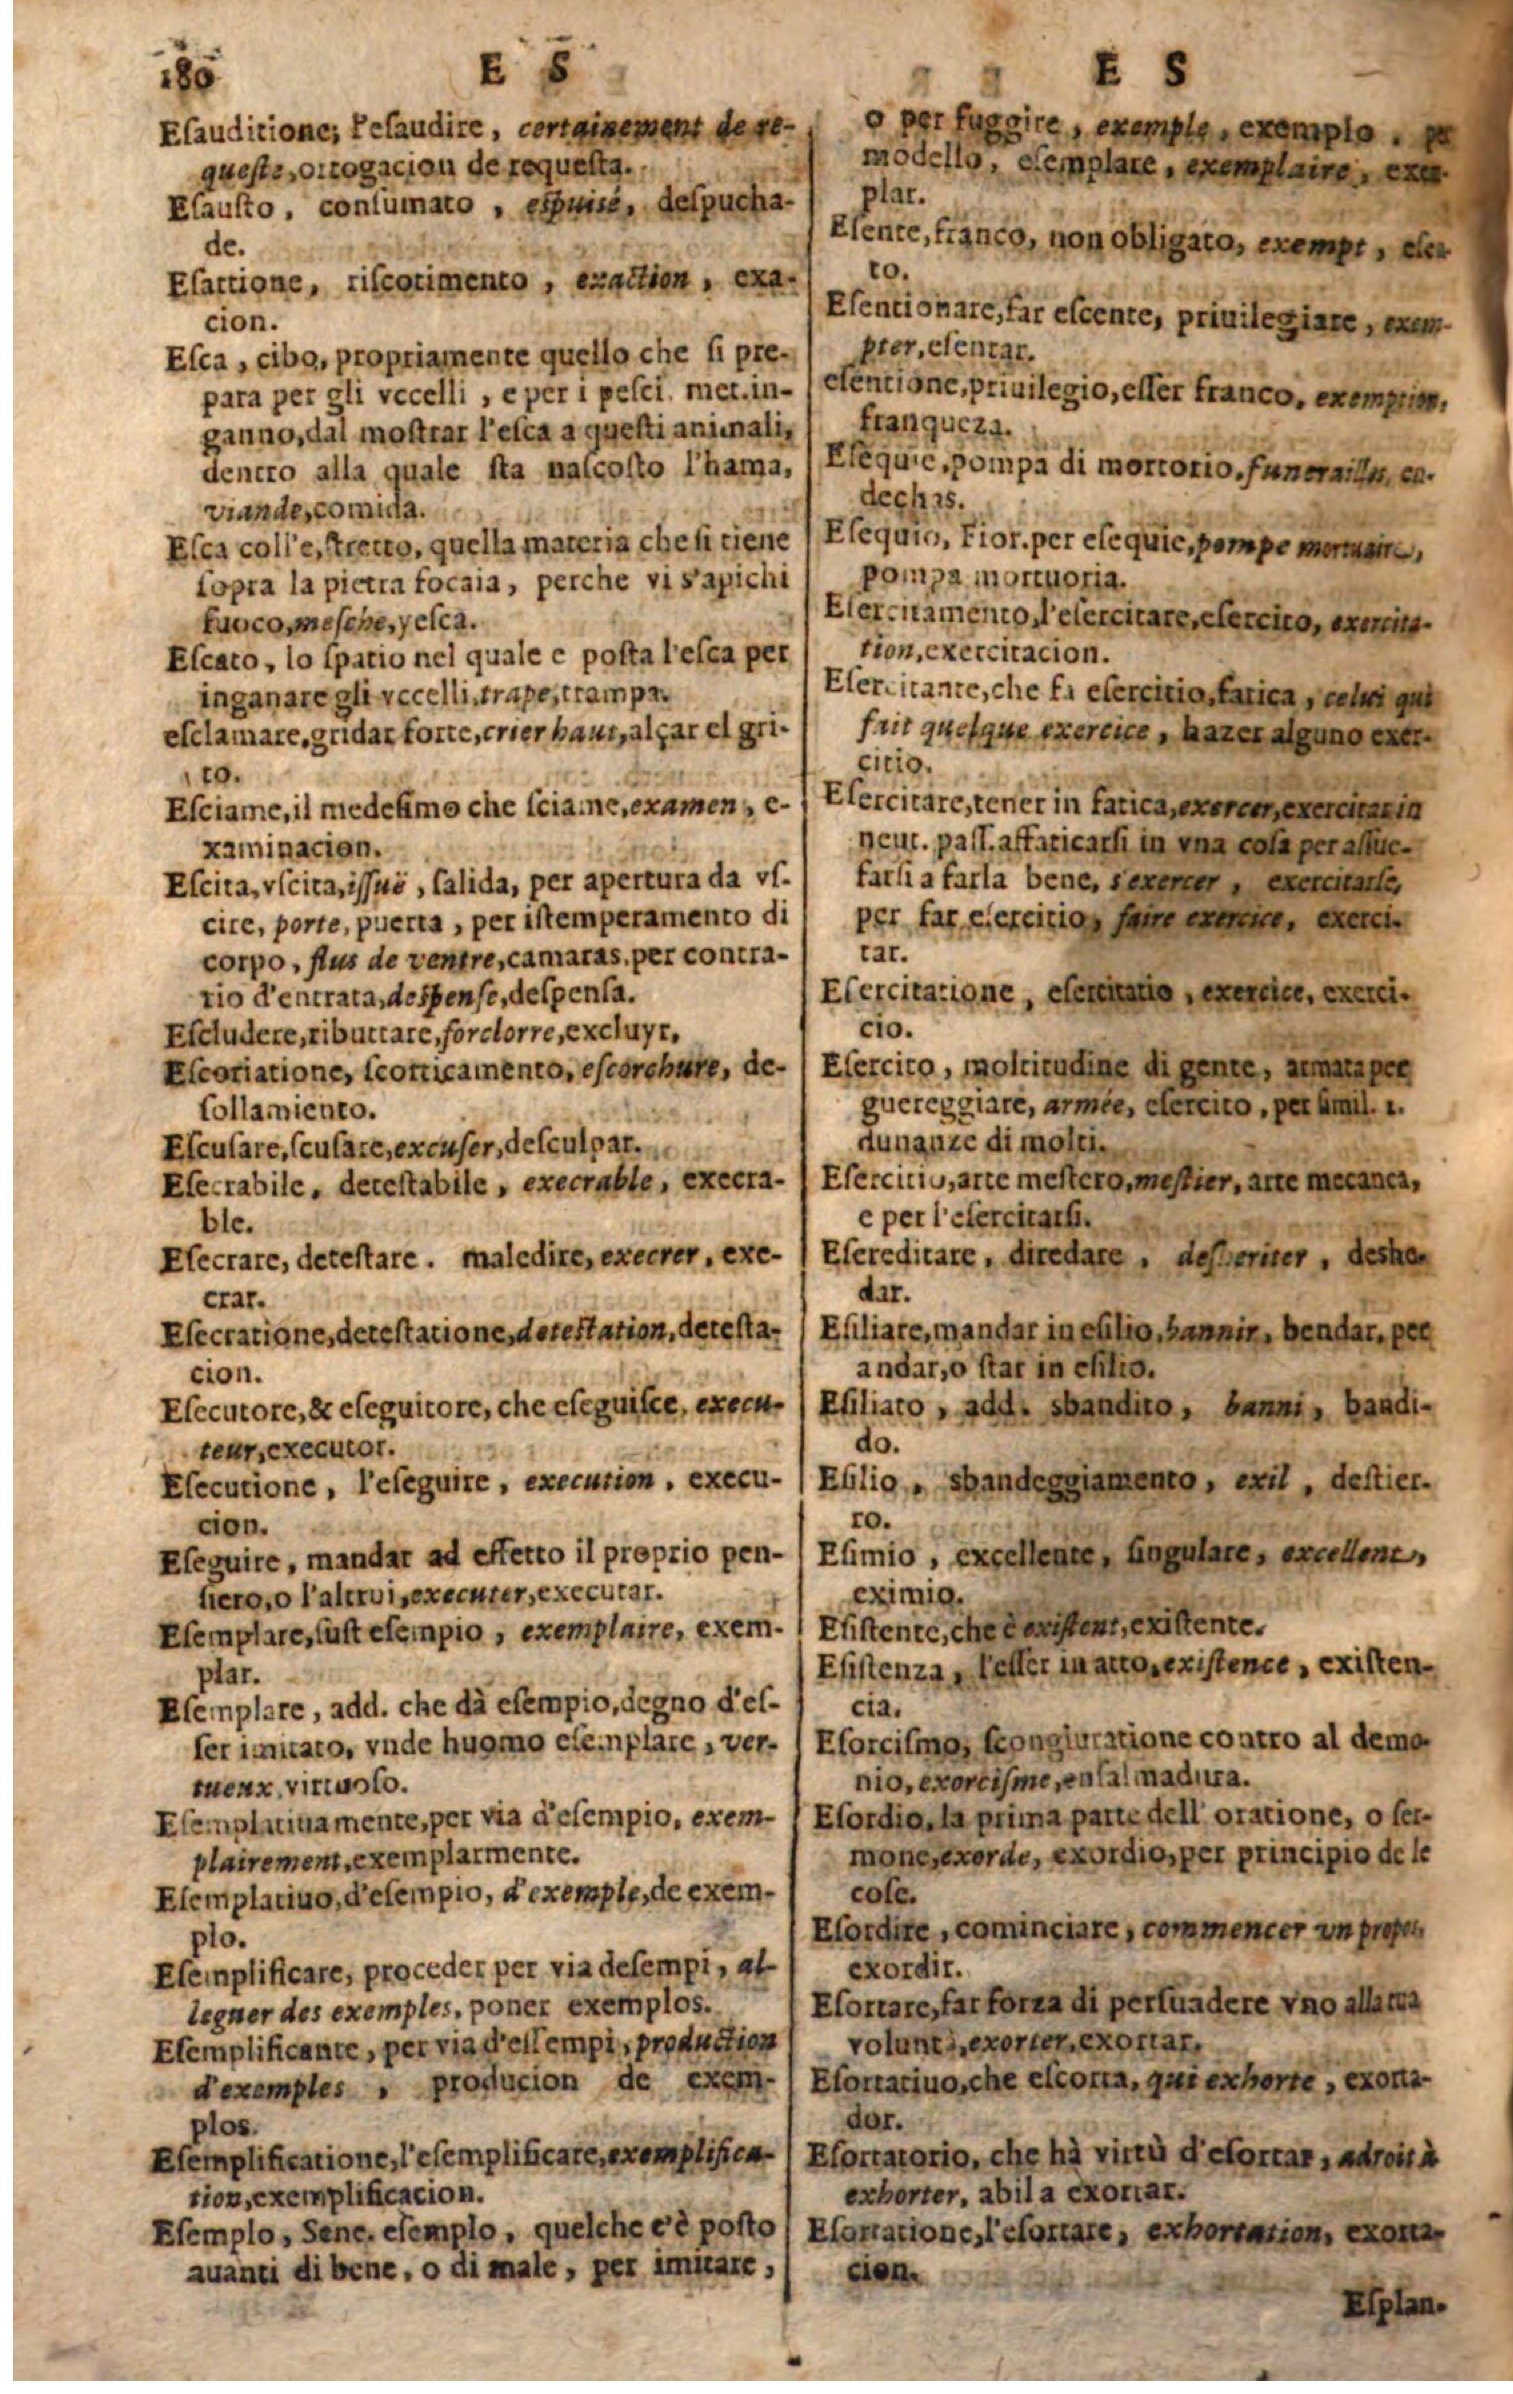 180
E S
Eſauditione; l'eſaudire, certainement de re-
queſte, ottogacion de requeſta.
Eſauſto, conſumato, eſpuisé, deſpucha-
de.
Eſattione, riſcotimento, exaction, exa-
cion.
Eſca, cibo, propriamente quello che ſi pre-
para per gli vccelli, e per i peſci. met. in-
ganno, dal moſtrar l'eſca a queſti animali,
dentro alla quale ſta naſcoſto l'hama,
viande, comida.
Eſca coll'e, ſtretto, quella materia che ſi tiene
ſopra la pietra focaia, perche vi s'apichi
fuoco, meſche, yeſca.
Eſcato, lo ſpatio nel quale e poſta l'eſca per
inganare gli vccelli, trape, trampa.
eſclamare, gridar forte, crier haut, alçar el gri-
to.
Eſciame, il medeſimo che ſciame, examen, e-
xaminacion.
Eſcita, vſcita, iſſuë, ſalida, per apertura da vſ-
cire, porte, puerta, per iſtemperamento di
corpo, flus de ventre, camaras. per contra-
rio d'entrata, deſpenſe, deſpenſa.
Eſcludere, ributtare, forclorre, excluyr,
Eſcoriatione, ſcorticamento, eſcorchure, de-
ſollamiento.
Eſcuſare, ſcuſare, excuſer, deſculpar.
Eſecrabile, deteſtabile, execrable, execra-
ble.
Eſecrare, deteſtare. maledire, execrer, exe-
crar.
Eſecratione, deteſtatione, deteſtation, deteſta-
cion.
Eſecutore, & eſeguitore, che eſeguiſce, execu-
teur, executor.
Eſecutione, l'eſeguire, execution, execu-
cion.
Eſeguire, mandar ad effetto il proprio pen-
ſiero, o l'altrui, executer, executar.
Eſemplare, ſuſt eſempio, exemplaire, exem-
plar.
Eſemplare, add. che dà eſempio, degno d'eſ-
ſer imitato, vnde huomo eſemplare, ver-
tueux, virtuoſo.
Eſemplatiuamente, per via d'eſempio, exem-
plairement, exemplarmente.
Eſemplatiuo, d'eſempio, d'exemple, de exem-
plo.
Eſemplificare, proceder per via deſempi, al-
leguer des exemples, poner exemplos.
Eſemplificante, per via d'eſſempi, production
d'exemples, producion de exem-
plos.
Eſemplificatione, l'eſemplificare, exemplifica-
tion, exemplificacion.
Eſemplo, Sene. eſemplo, quelche c'è poſto
auanti di bene, o di male, per imitare,
E S
o per fuggire, exemple, exemplo. per
modello, eſemplare, exemplaire, exem-
plar.
Eſente, franco, non obligato, exempt, eſen-
to.
Eſentionare, far eſcente, priuilegiare, exem-
pter, eſentar.
eſentione, priuilegio, eſſer franco, exemption,
franqueza.
Eſequie, pompa di mortorio, funerailles, en-
dechas.
Eſequio, Fior. per eſequie, pompe mortuaire,
pompa mortuoria.
Eſercitamento, l'eſercitare, eſercito, exercita-
tion, exercitacion.
Eſercitante, che fa eſercitio, fatica, celui qui
fait quelque exercice, hazer alguno exer-
citio.
Eſercitare, tener in fatica, exercer, exercitar in
neut. paſſ. affaticarſi in vna coſa per aſſue-
farſi a farla bene, s'exercer, exercitarſe,
per far eſercitio, faire exercice, exerci-
tar.
Eſercitatione, eſercitatio, exercice, exerci-
cio.
Eſercito, moltitudine di gente, armata per
guereggiare, armée, eſercito, per ſimil. 1.
dunanze di molti.
Eſercitio, arte meſtero, meſtier, arte mecanca,
e per l'eſercitarſi.
Eſereditare, diredare, desheriter, deshe-
dar.
Eſiliare, mandar in eſilio, bannir, bendar, per
andar, o ſtar in eſilio.
Eſiliato, add. sbandito, banni, bandi-
do.
Eſilio, sbandeggiamento, exil, deſtier-
ro.
Eſimio, excellente, ſingulare, excellent,
eximio.
Eſiſtente, che è exiſtent, exiſtente.
Eſiſtenza, l'eſſer in atto, exiſtence, exiſten-
cia.
Eſorciſmo, ſcongiuratione contro al demo-
nio, exorciſme, enſalmadura.
Eſordio, la prima parte dell' oratione, o ſer-
mone, exorde, exordio, per principio de le
coſe.
Eſordire, cominciare, commencer vn propos,
exordir.
Eſortare, far forza di perſuadere vno alla tua
voluntà, exorter, exortar.
Eſortatiuo, che eſcorta, qui exhorte, exorta-
dor.
Eſortatorio, che hà virtù d'eſortar, adroit à
exhorter, abil a exortar.
Eſortatione, l'eſortare, exhortation, exorta-
cion.
Eſplan-